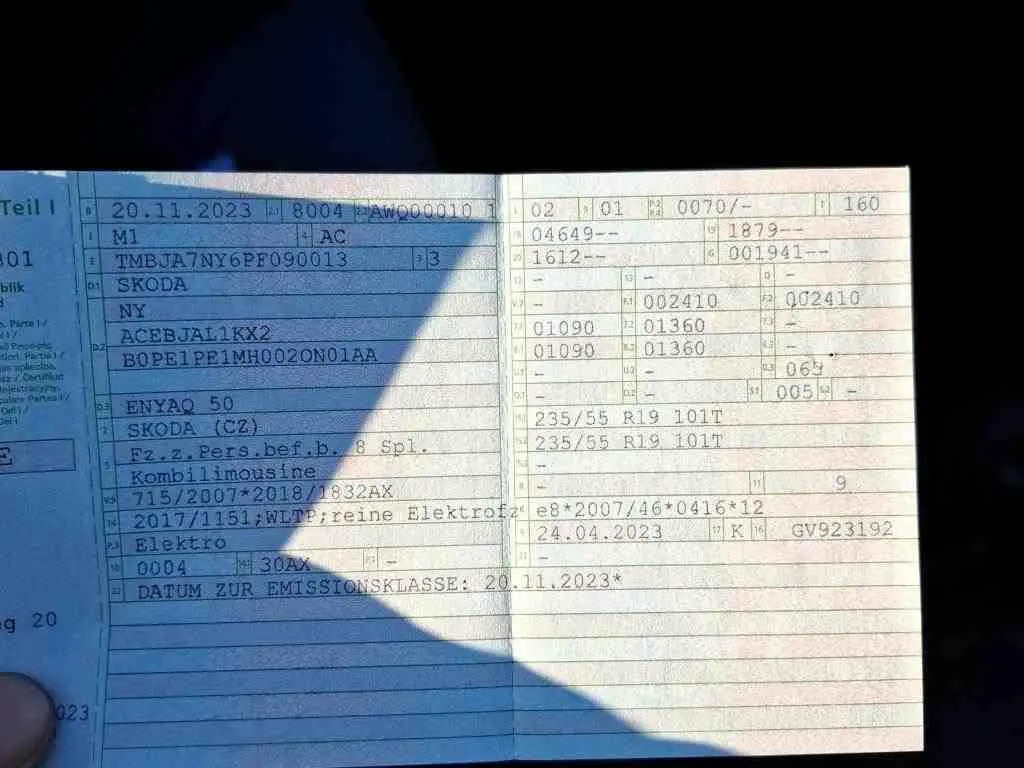 Teil I
001
blik
Parte I /
20
023
B 20.11.2023 2.1 8004 AWQ00010 1
J M1 4 AC
E TMBJA7NY6PF090013 3 3
D.1 SKODA
NY
D.2 ACEBJAL1KX2
B0PE1PE1MH002ON01AA
D.3 ENYAQ 50
2 SKODA (CZ)
5 Fz.z.Pers.bef.b. 8 Spl.
Kombilimousine
V.9 715/2007*2018/1832AX
14 2017/1151;WLTP;reine Elektrofz
P.3 Elektro
10 0004 14.1 30AX P.1 -
22 DATUM ZUR EMISSIONSKLASSE: 20.11.2023*
L 02 9 01 P.2 P.4 0070/- T 160
18 04649-- 19 1879--
20 1612-- G 001941--
- - -
V.7 - F.1 002410 F.2 002410
7.1 01090 7.2 01360 7.3 -
8.1 01090 8.2 01360 8.3 -
U.1 - U.2 - U.3 069
O.1 - O.2 - S.1 005 S.2 -
15.1 235/55 R19 101T
15.2 235/55 R19 101T
15.3 -
R - 11 9
K e8*2007/46*0416*12
6 24.04.2023 17 K 16 GV923192
21 -